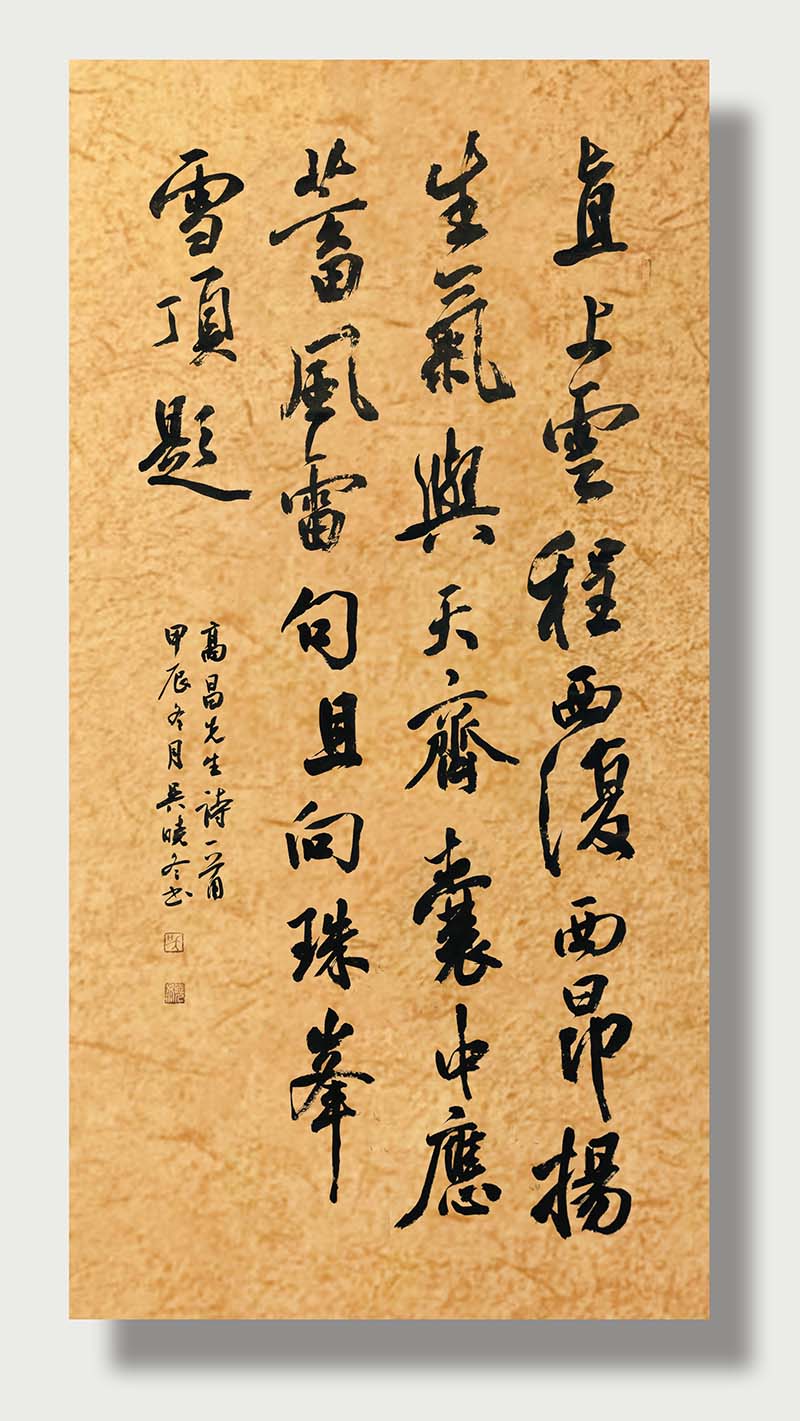 直上雲程西復西昂揚
生氣與天齊囊中應
蓄風雷句且向珠峯
雪頂題
高昌先生詩一首
甲辰冬月吳曉冬书